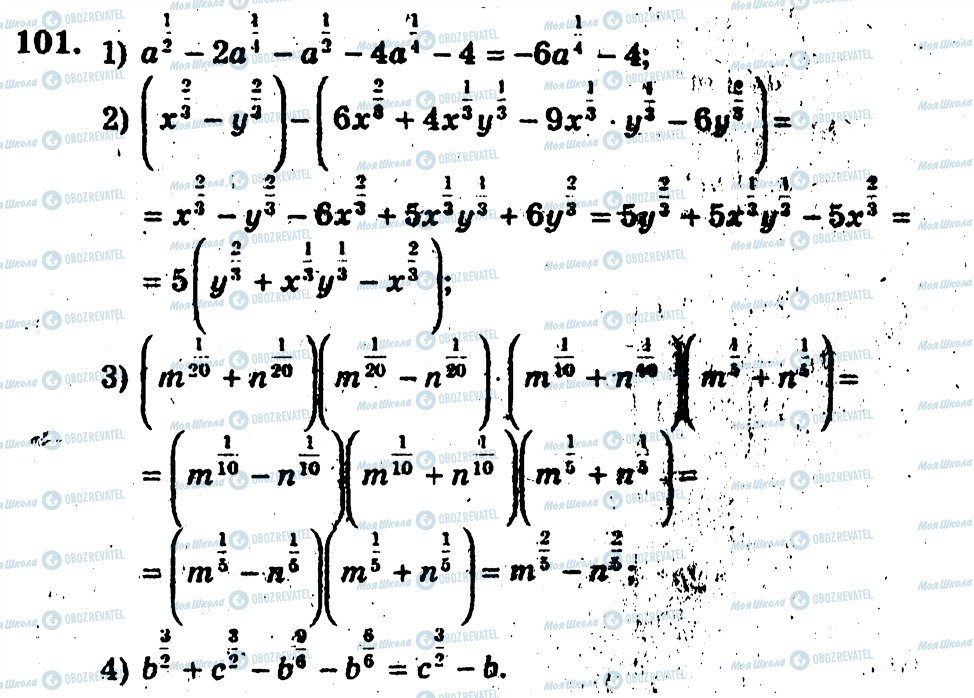 101. 1) a^{1/2} − 2a^{1/4} − a^{1/2} − 4a^{1/4} − 4 = −6a^{1/4} − 4;
2) (x^{2/3} − y^{2/3}) − (6x^{2/3} + 4x^{1/3}y^{1/3} − 9x^{1/3} · y^{1/3} − 6y^{2/3}) =
= x^{2/3} − y^{2/3} − 6x^{2/3} + 5x^{1/3}y^{1/3} + 6y^{2/3} = 5y^{2/3} + 5x^{1/3}y^{1/3} − 5x^{2/3} =
= 5(y^{2/3} + x^{1/3}y^{1/3} − x^{2/3});
3) (m^{1/20} + n^{1/20})(m^{1/20} − n^{1/20}) · (m^{1/10} + n^{1/10})(m^{1/5} + n^{1/5}) =
= (m^{1/10} − n^{1/10})(m^{1/10} + n^{1/10})(m^{1/5} + n^{1/5}) =
= (m^{1/5} − n^{1/5})(m^{1/5} + n^{1/5}) = m^{2/5} − n^{2/5};
4) b^{3/2} + c^{3/2} − b^{9/6} − b^{6/6} = c^{3/2} − b.